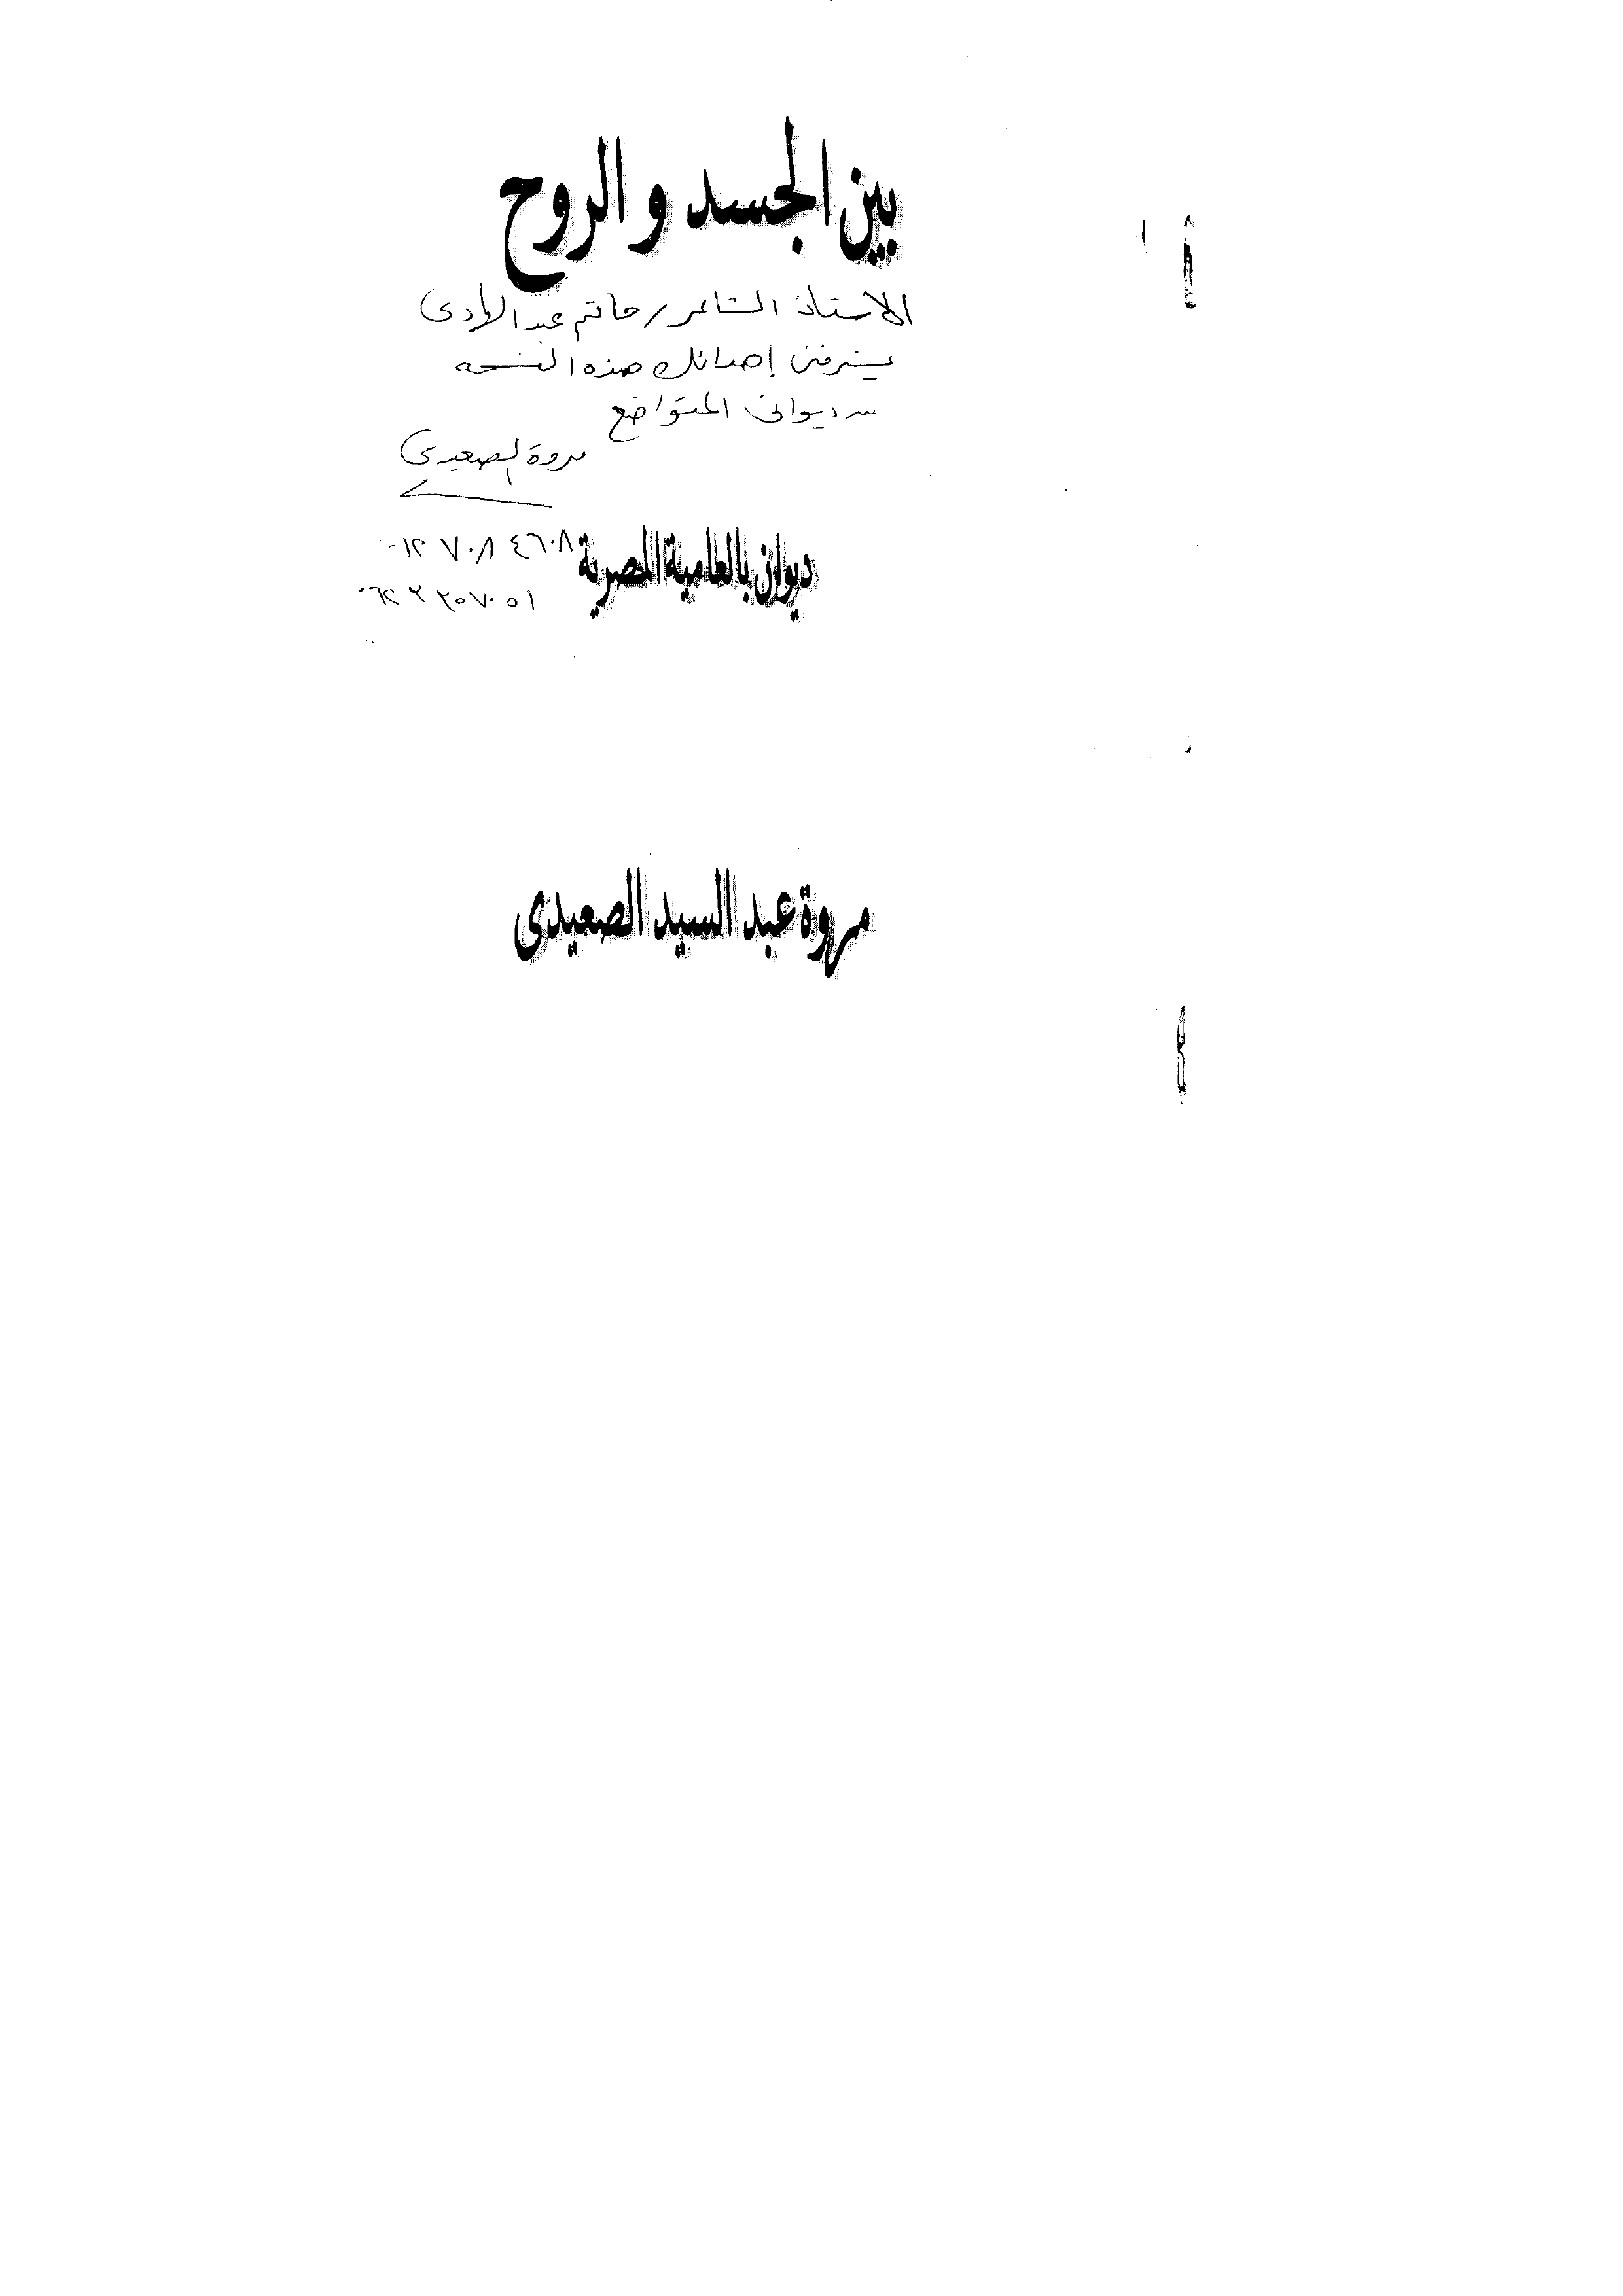 بين الجسد والروح
الاستاذ الشاعر / حاتم عبد الهادى
يشرفنى إهدائك هذه النسخه
من ديوانى المتواضع
مروة الصعيدى
ديوان بالعامية المصرية
٠١٢ ٧٠٨ ٤٦٠٨
مروة عبد السيد الصعيدى